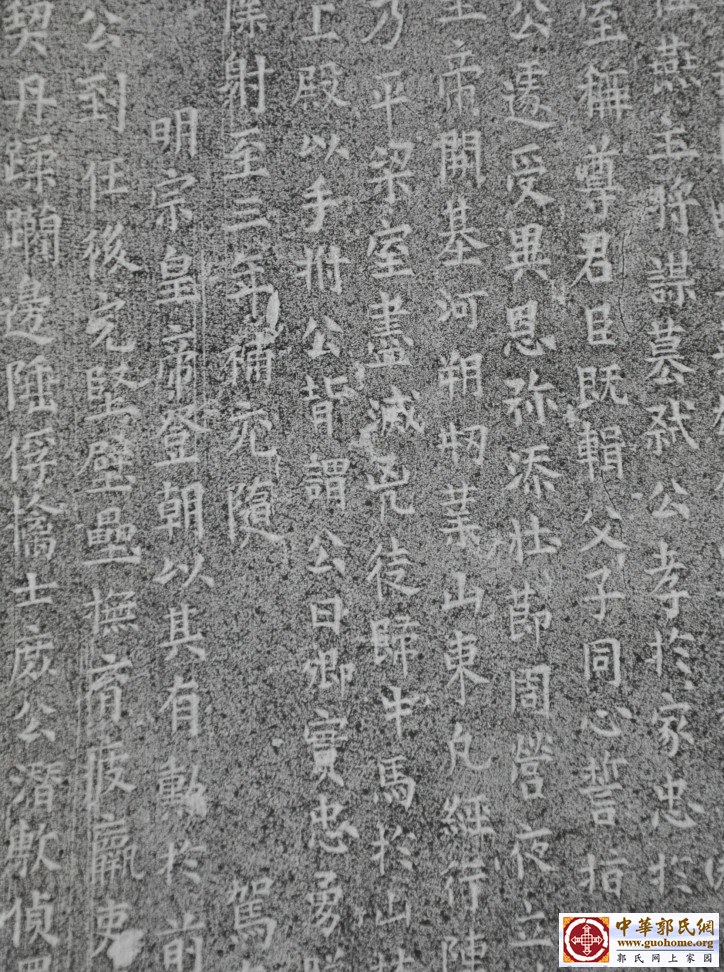 燕主將謀慕弒公孝於家忠於
室稱尊君臣既輯父子同心誓指
公遷受異恩弥添壯節閤營夜立
帝開基河朔刱業山東凡經行陣
乃平梁室盡滅兇徒歸牛馬於山
上殿以手拊公背謂公曰卿實忠勇
射至三年補充隨 駕
明宗皇帝登朝以其有勳於前
公到任後完堅壁壘撫育疲羸吏
契丹蹂躪邊陲俘擒士庶公潛偵
中華郭氏網
www.guohome.org
郭氏网上家园